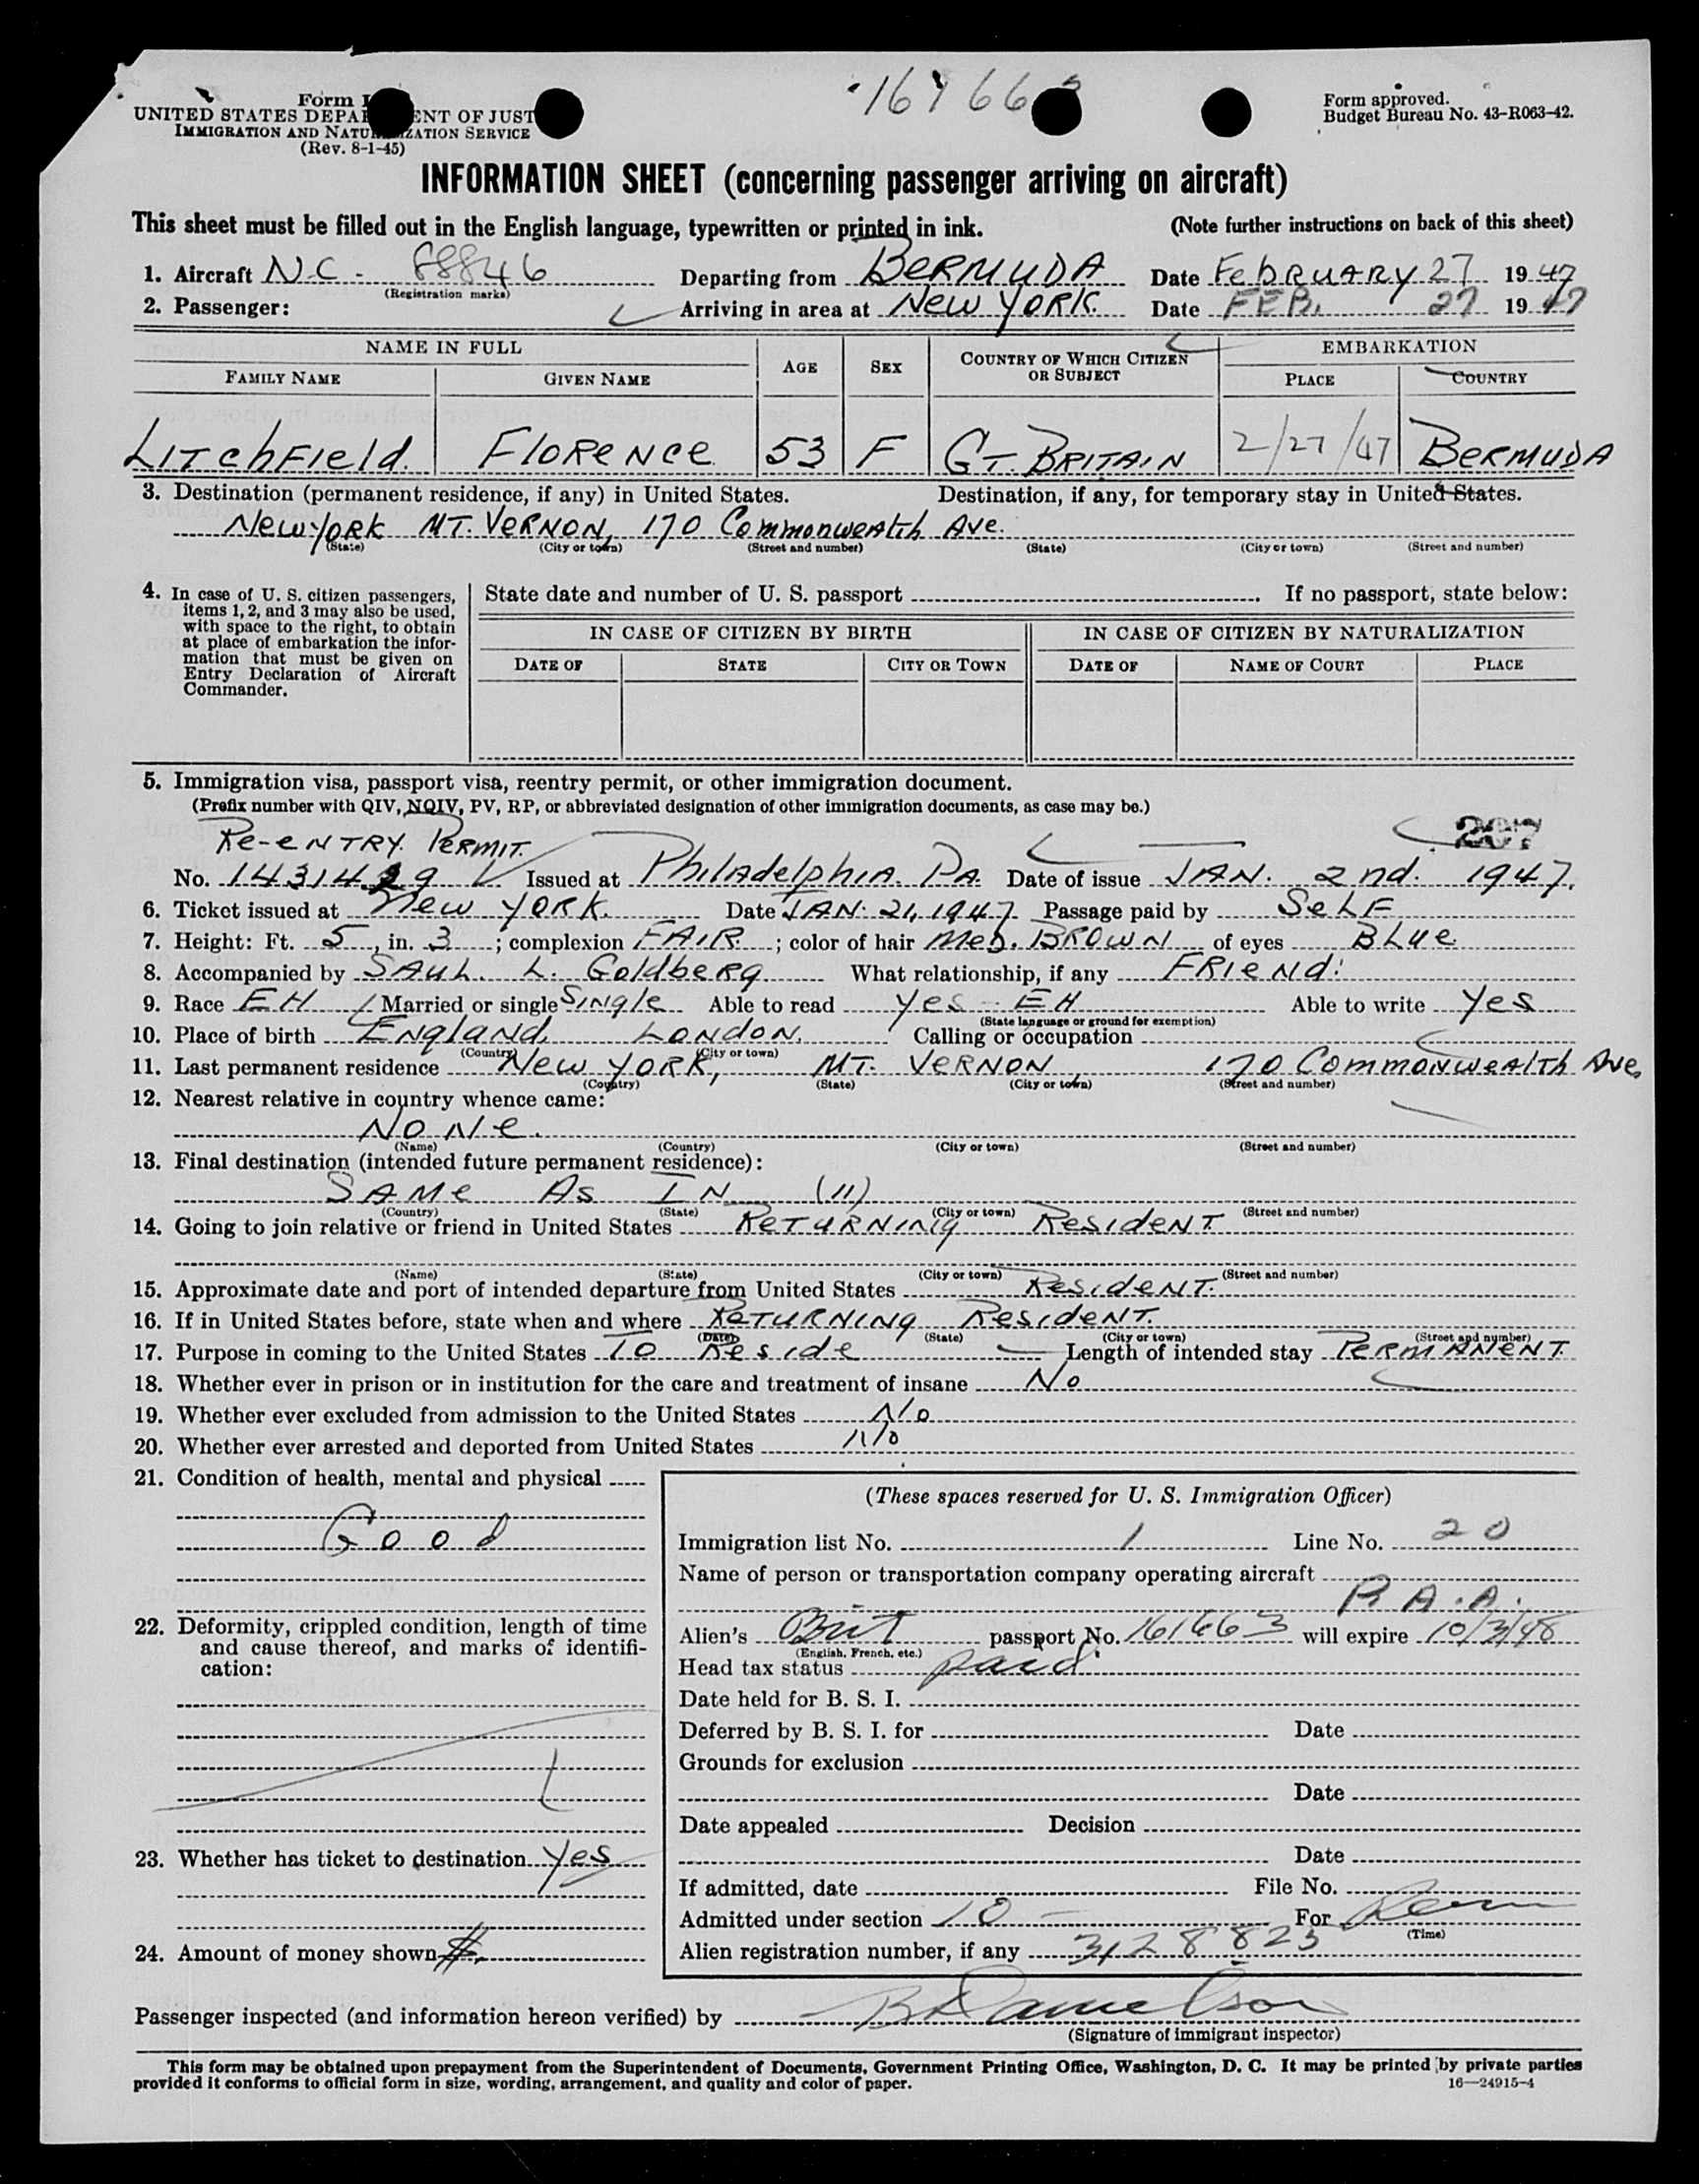 Form I
UNITED STATES DEPA ENT OF JUST
IMMIGRATION AND NATU ZATION SERVICE
(Rev. 8-1-45)
Form approved.
Budget Bureau No. 43-R063-42.
INFORMATION SHEET (concerning passenger arriving on aircraft)
This sheet must be filled out in the English language, typewritten or printed in ink. (Note further instructions on back of this sheet)
1. Aircraft N.C - 88846 Departing from BERMUDA Date FebRUARY 27 1947
(Registration marks)
2. Passenger: Arriving in area at New YORK. Date FEB. 27 1947
NAME IN FULL AGE SEX COUNTRY OF WHICH CITIZEN OR SUBJECT EMBARKATION
FAMILY NAME GIVEN NAME PLACE COUNTRY
LITchFIeld. FLORENCe 53 F GT. BRITAIN 2/27/47 BERMUDA
3. Destination (permanent residence, if any) in United States. Destination, if any, for temporary stay in United States.
New York MT. VeRNON, 170 CommonweAlth Ave.
(State) (City or town) (Street and number) (State) (City or town) (Street and number)
4. In case of U. S. citizen passengers, items 1, 2, and 3 may also be used, with space to the right, to obtain at place of embarkation the information that must be given on Entry Declaration of Aircraft Commander.
State date and number of U. S. passport If no passport, state below:
IN CASE OF CITIZEN BY BIRTH IN CASE OF CITIZEN BY NATURALIZATION
DATE OF STATE CITY OR TOWN DATE OF NAME OF COURT PLACE
5. Immigration visa, passport visa, reentry permit, or other immigration document.
(Prefix number with QIV, NQIV, PV, RP, or abbreviated designation of other immigration documents, as case may be.)
207
Re-eNTRY PeRMIT.
No. Issued at PhilAdelphIA. PA. Date of issue JAN. 2nd. 1947.
6. Ticket issued at New YORK. Date JAN. 21, 1947. Passage paid by SeLF
7. Height: Ft. 5, in. 3; complexion FAIR; color of hair Med. BROWN of eyes BLue
8. Accompanied by SAUL L. GoldbeRg What relationship, if any FRIeNd.
9. Race EH Married or single SINgle Able to read Yes - EH Able to write Yes
(State language or ground for exemption)
10. Place of birth ENglaNd, LoNdoN. Calling or occupation
(Country) (City or town)
11. Last permanent residence New YORK, MT. VeRNON, 170 CommoNweAlTh Ave,
(Country) (State) (City or town) (Street and number)
12. Nearest relative in country whence came:
NoNe.
(Name) (Country) (City or town) (Street and number)
13. Final destination (intended future permanent residence):
SAMe As IN (11)
(Country) (State) (City or town) (Street and number)
14. Going to join relative or friend in United States ReTURNINg ResIdeNT.
(Name) (State) (City or town) (Street and number)
15. Approximate date and port of intended departure from United States ResideNT.
16. If in United States before, state when and where ReTURNINg ResideNT.
(Date) (State) (City or town) (Street and number)
17. Purpose in coming to the United States To Reside Length of intended stay PeRMANeNT
18. Whether ever in prison or in institution for the care and treatment of insane No
19. Whether ever excluded from admission to the United States No
20. Whether ever arrested and deported from United States No
21. Condition of health, mental and physical
Good
22. Deformity, crippled condition, length of time and cause thereof, and marks of identification:
23. Whether has ticket to destination Yes
24. Amount of money shown $.
(These spaces reserved for U. S. Immigration Officer)
Immigration list No. 1 Line No. 20
Name of person or transportation company operating aircraft
P.A.A.
Alien's Brit passport No. 161663 will expire 10/3/48
(English, French, etc.)
Head tax status paid
Date held for B. S. I.
Deferred by B. S. I. for Date
Grounds for exclusion
Date
Date appealed Decision
Date
If admitted, date File No.
Admitted under section 10 - For Perm
(Time)
Alien registration number, if any 3128823
Passenger inspected (and information hereon verified) by
(Signature of immigrant inspector)
This form may be obtained upon prepayment from the Superintendent of Documents, Government Printing Office, Washington, D. C. It may be printed by private parties
provided it conforms to official form in size, wording, arrangement, and quality and color of paper. 16—24915-4